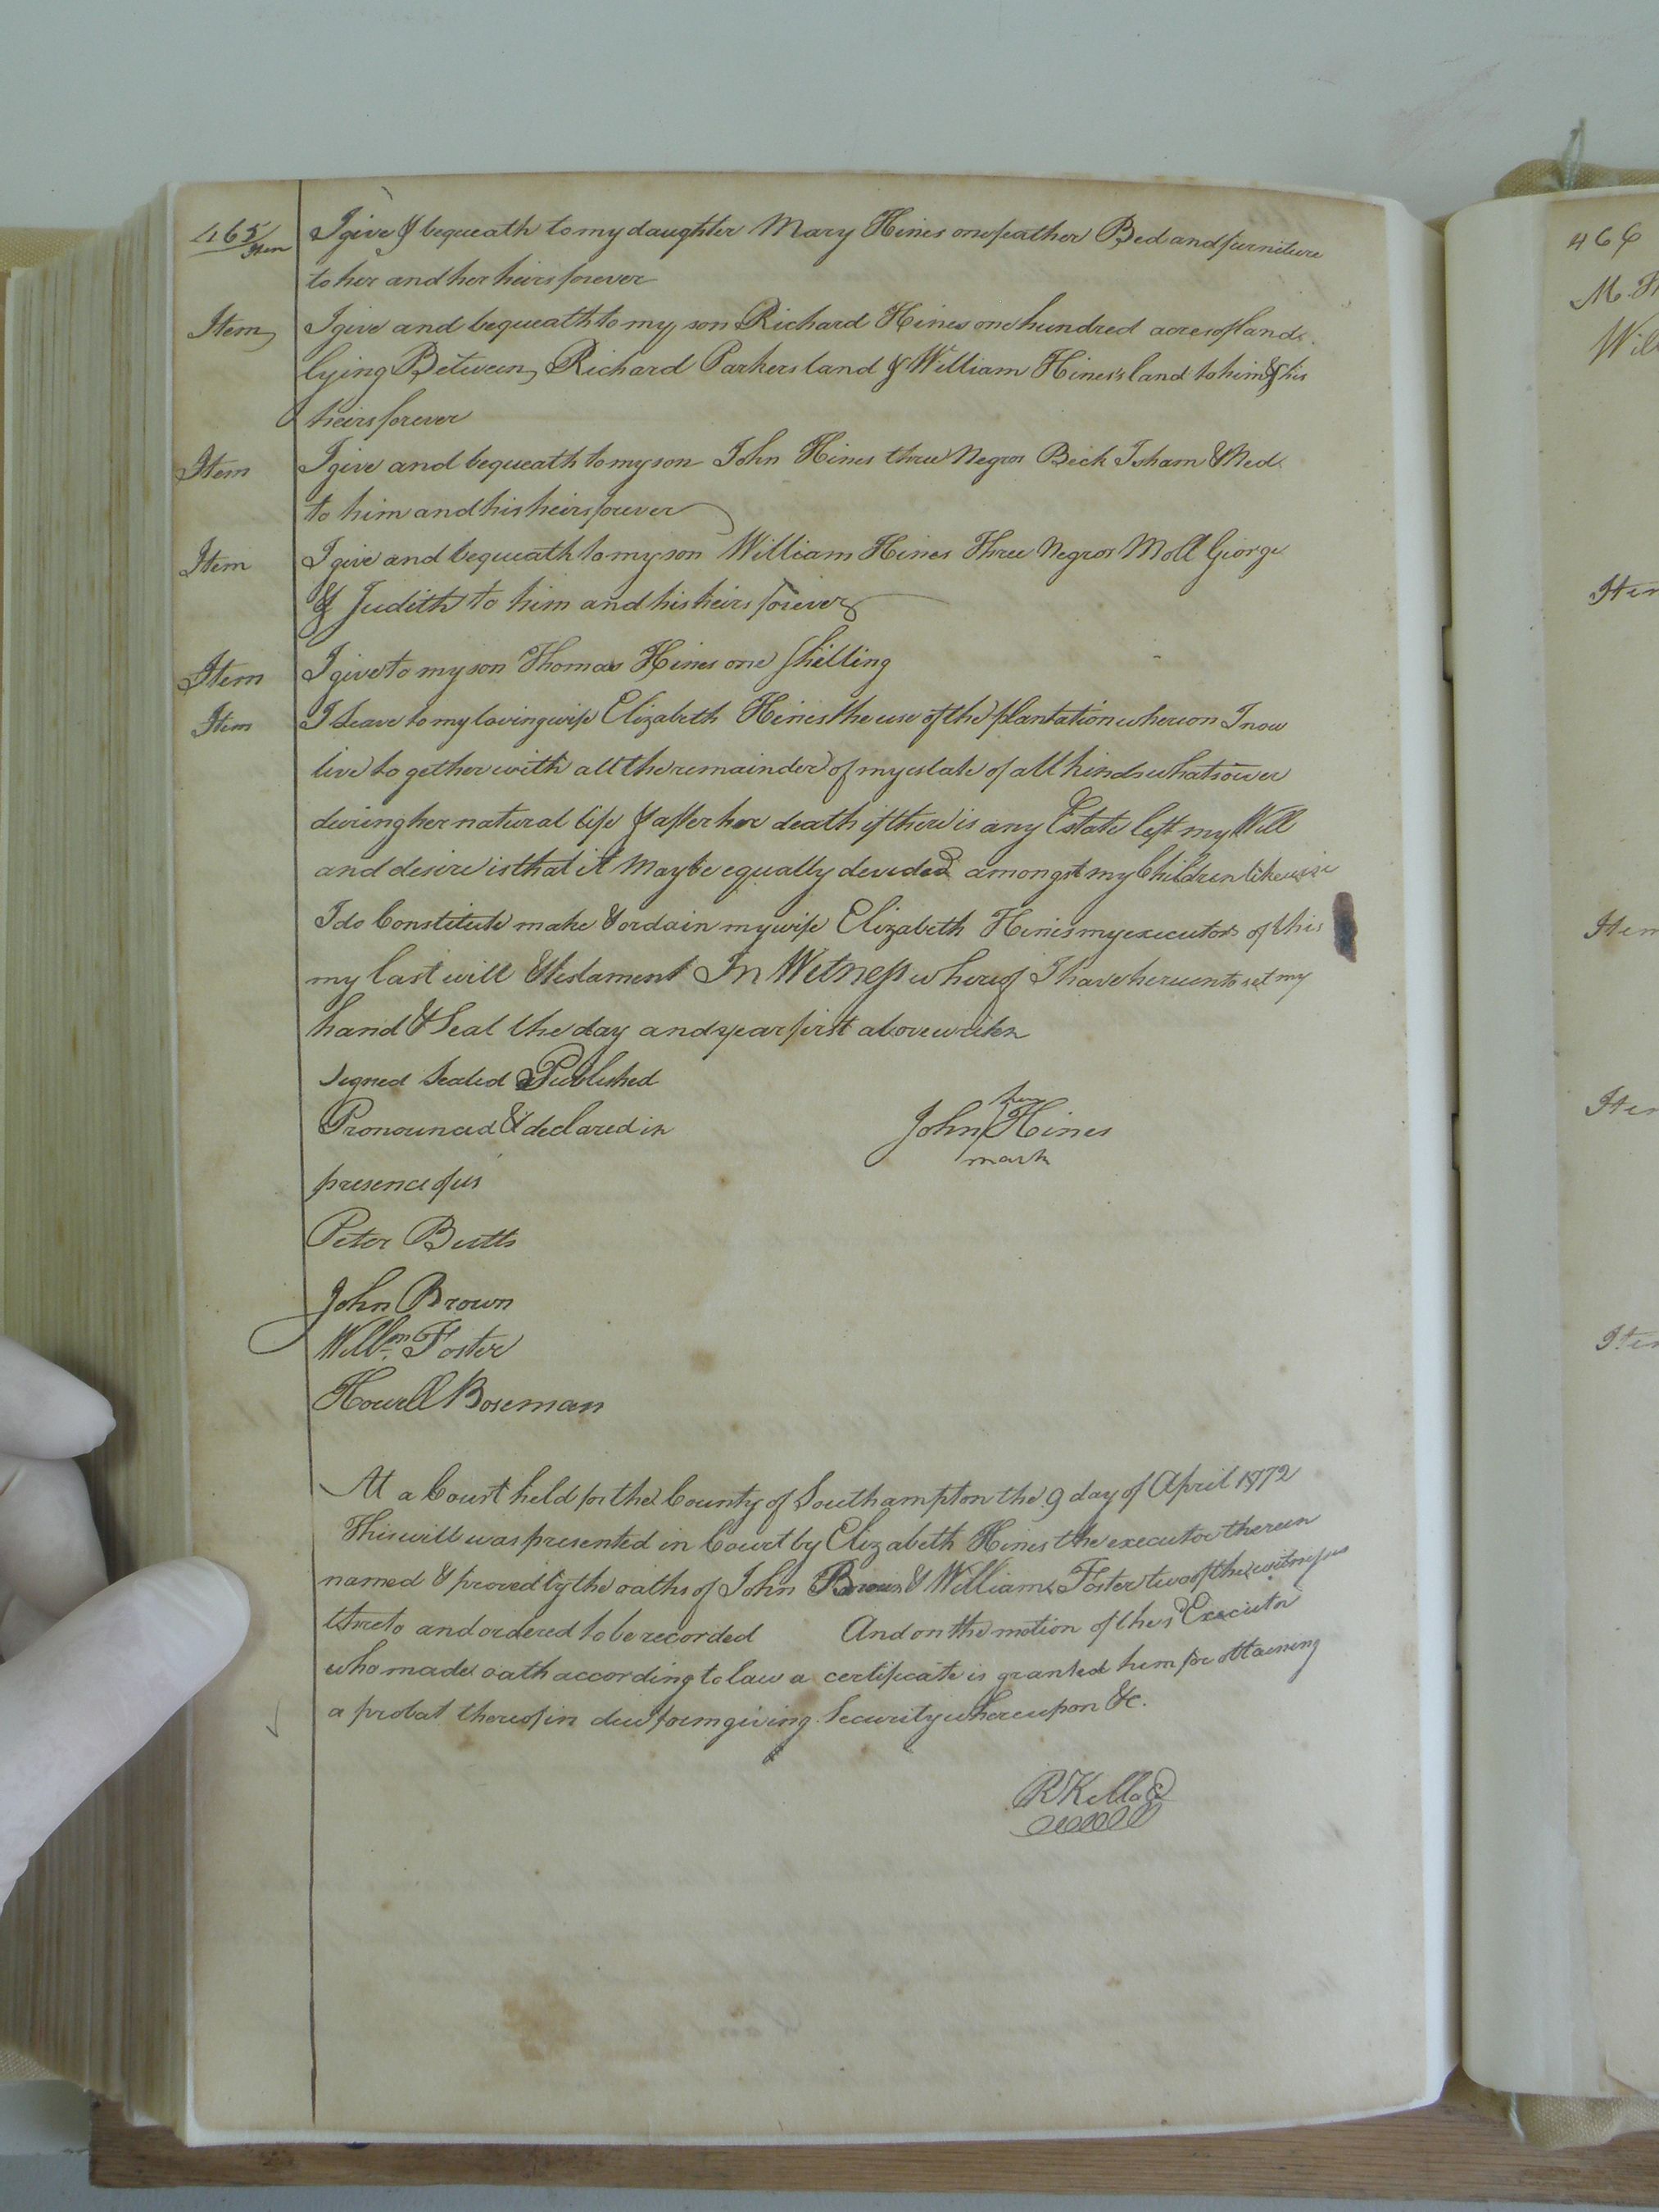 465
Item I give & bequeath to my daughter Mary Hines one feather Bed and furniture
to her and her heirs forever
Item I give and bequeath to my son Richard Hines one hundred acres of land
lying Between Richard Parkers land & William Hines's land to him & his
heirs forever
Item I give and bequeath to my son John Hines three Negros Beck Isham & Ned
to him and his heirs forever
Item I give and bequeath to my son William Hines Three Negros Moll George
& Judith to him and his heirs forever
Item I give to my son Thomas Hines one Shilling
Item I Leave to my loving wife Elizabeth Hines the use of the plantation whereon I now
live to gether with all the remainder of my estate of all kinds whatsoever
during her natural life & after her death if there is any Estate left my Will
and desire is that it May be equally devided amongst my Children likewise
I do Constitute make & ordain my wife Elizabeth Hines my executors of this
my last will & testament In Witness whereof I have hereunto set my
hand & Seal the day and year first above writen
Signed Sealed & Published
Pronounced & declared in
presence of us
his
John Hines
mark
Peter Butts
John Brown
Willm Foster
Howell Boseman
At a Court held for the County of Southampton the 9 day of April 1772
This will was presented in Court by Elizabeth Hines the executor therein
named & proved by the oaths of John Brown & William Foster two of the witnesses
thereto and ordered to be recorded And on the motion of the sd Executor
who made oath according to law a certificate is granted him for obtaining
a probat thereof in due form giving Security whereupon &c.
R Kello
466
M.
Will
Item
Item
Item
Item